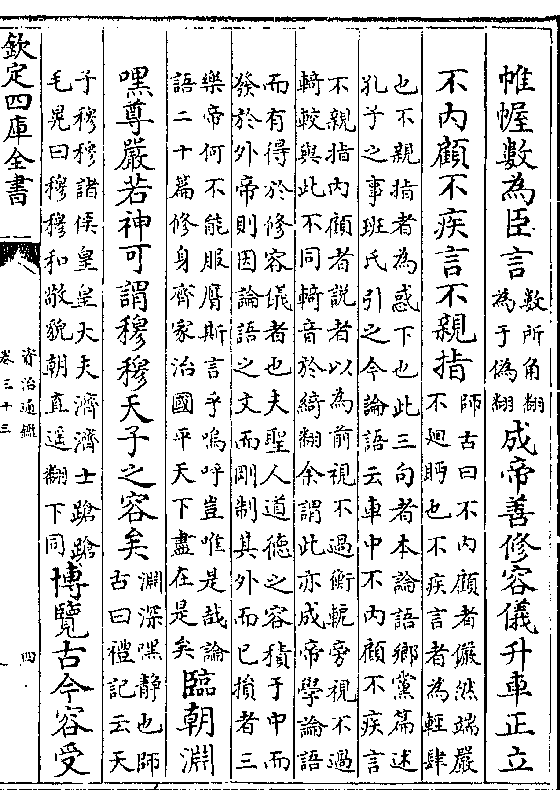 帷幄數為臣言數所角翻為于偽翻成帝善修容儀升車正立
不内顧不疾言不親指師古曰不内顧者儼然端嚴不迴眄也不疾言者為輕肆
也不親指者為惑下也此三句者本論語鄉黨篇述
孔子之事班氏引之今論語云車中不内顧不疾言
不親指内顧者說者以為前視不過衡軛旁視不過
輢較與此不同輢音於綺翻余謂此亦成帝學論語
而有得於修容儀者也夫聖人道德之容積于中而
發於外帝則因論語之文而剛制其外而已損者三
樂帝何不能服膺斯言乎嗚呼豈唯是哉論語二十篇修身齊家治國平天下盡在是矣臨朝淵
嘿尊嚴若神可謂穆穆天子之容矣淵深嘿静也師古曰禮記云天
子穆穆諸侯皇皇大夫濟濟士蹌蹌毛晃曰穆穆和敬貌朝直遥翻下同博覽古今容受
欽定四庫全書
資治通鑑
卷三十三
四